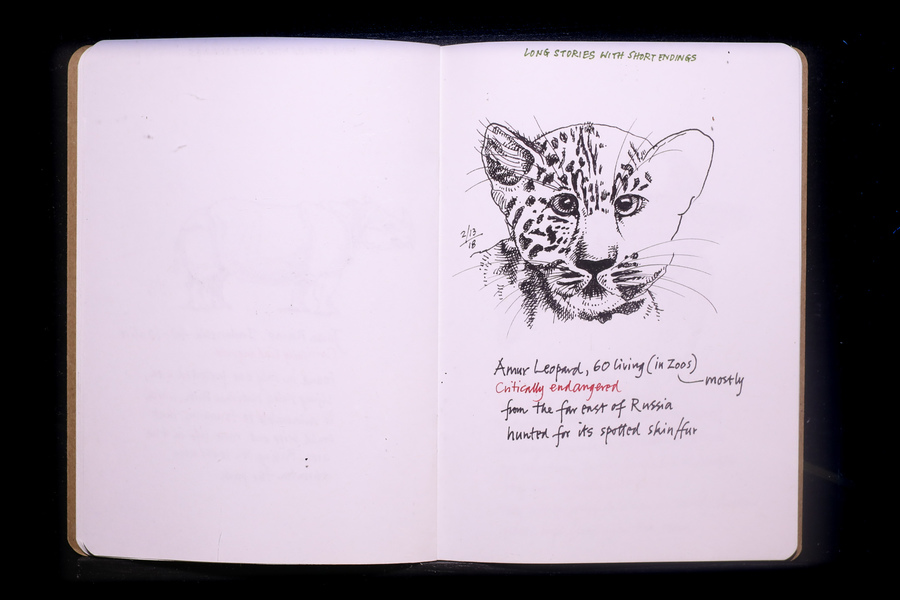 LONG STORIES WITH SHORT ENDINGS
2/13
18
Amur Leopard, 60 living (in Zoos)
mostly
Critically endangered
from the far east of Russia
hunted for its spotted skin/fur